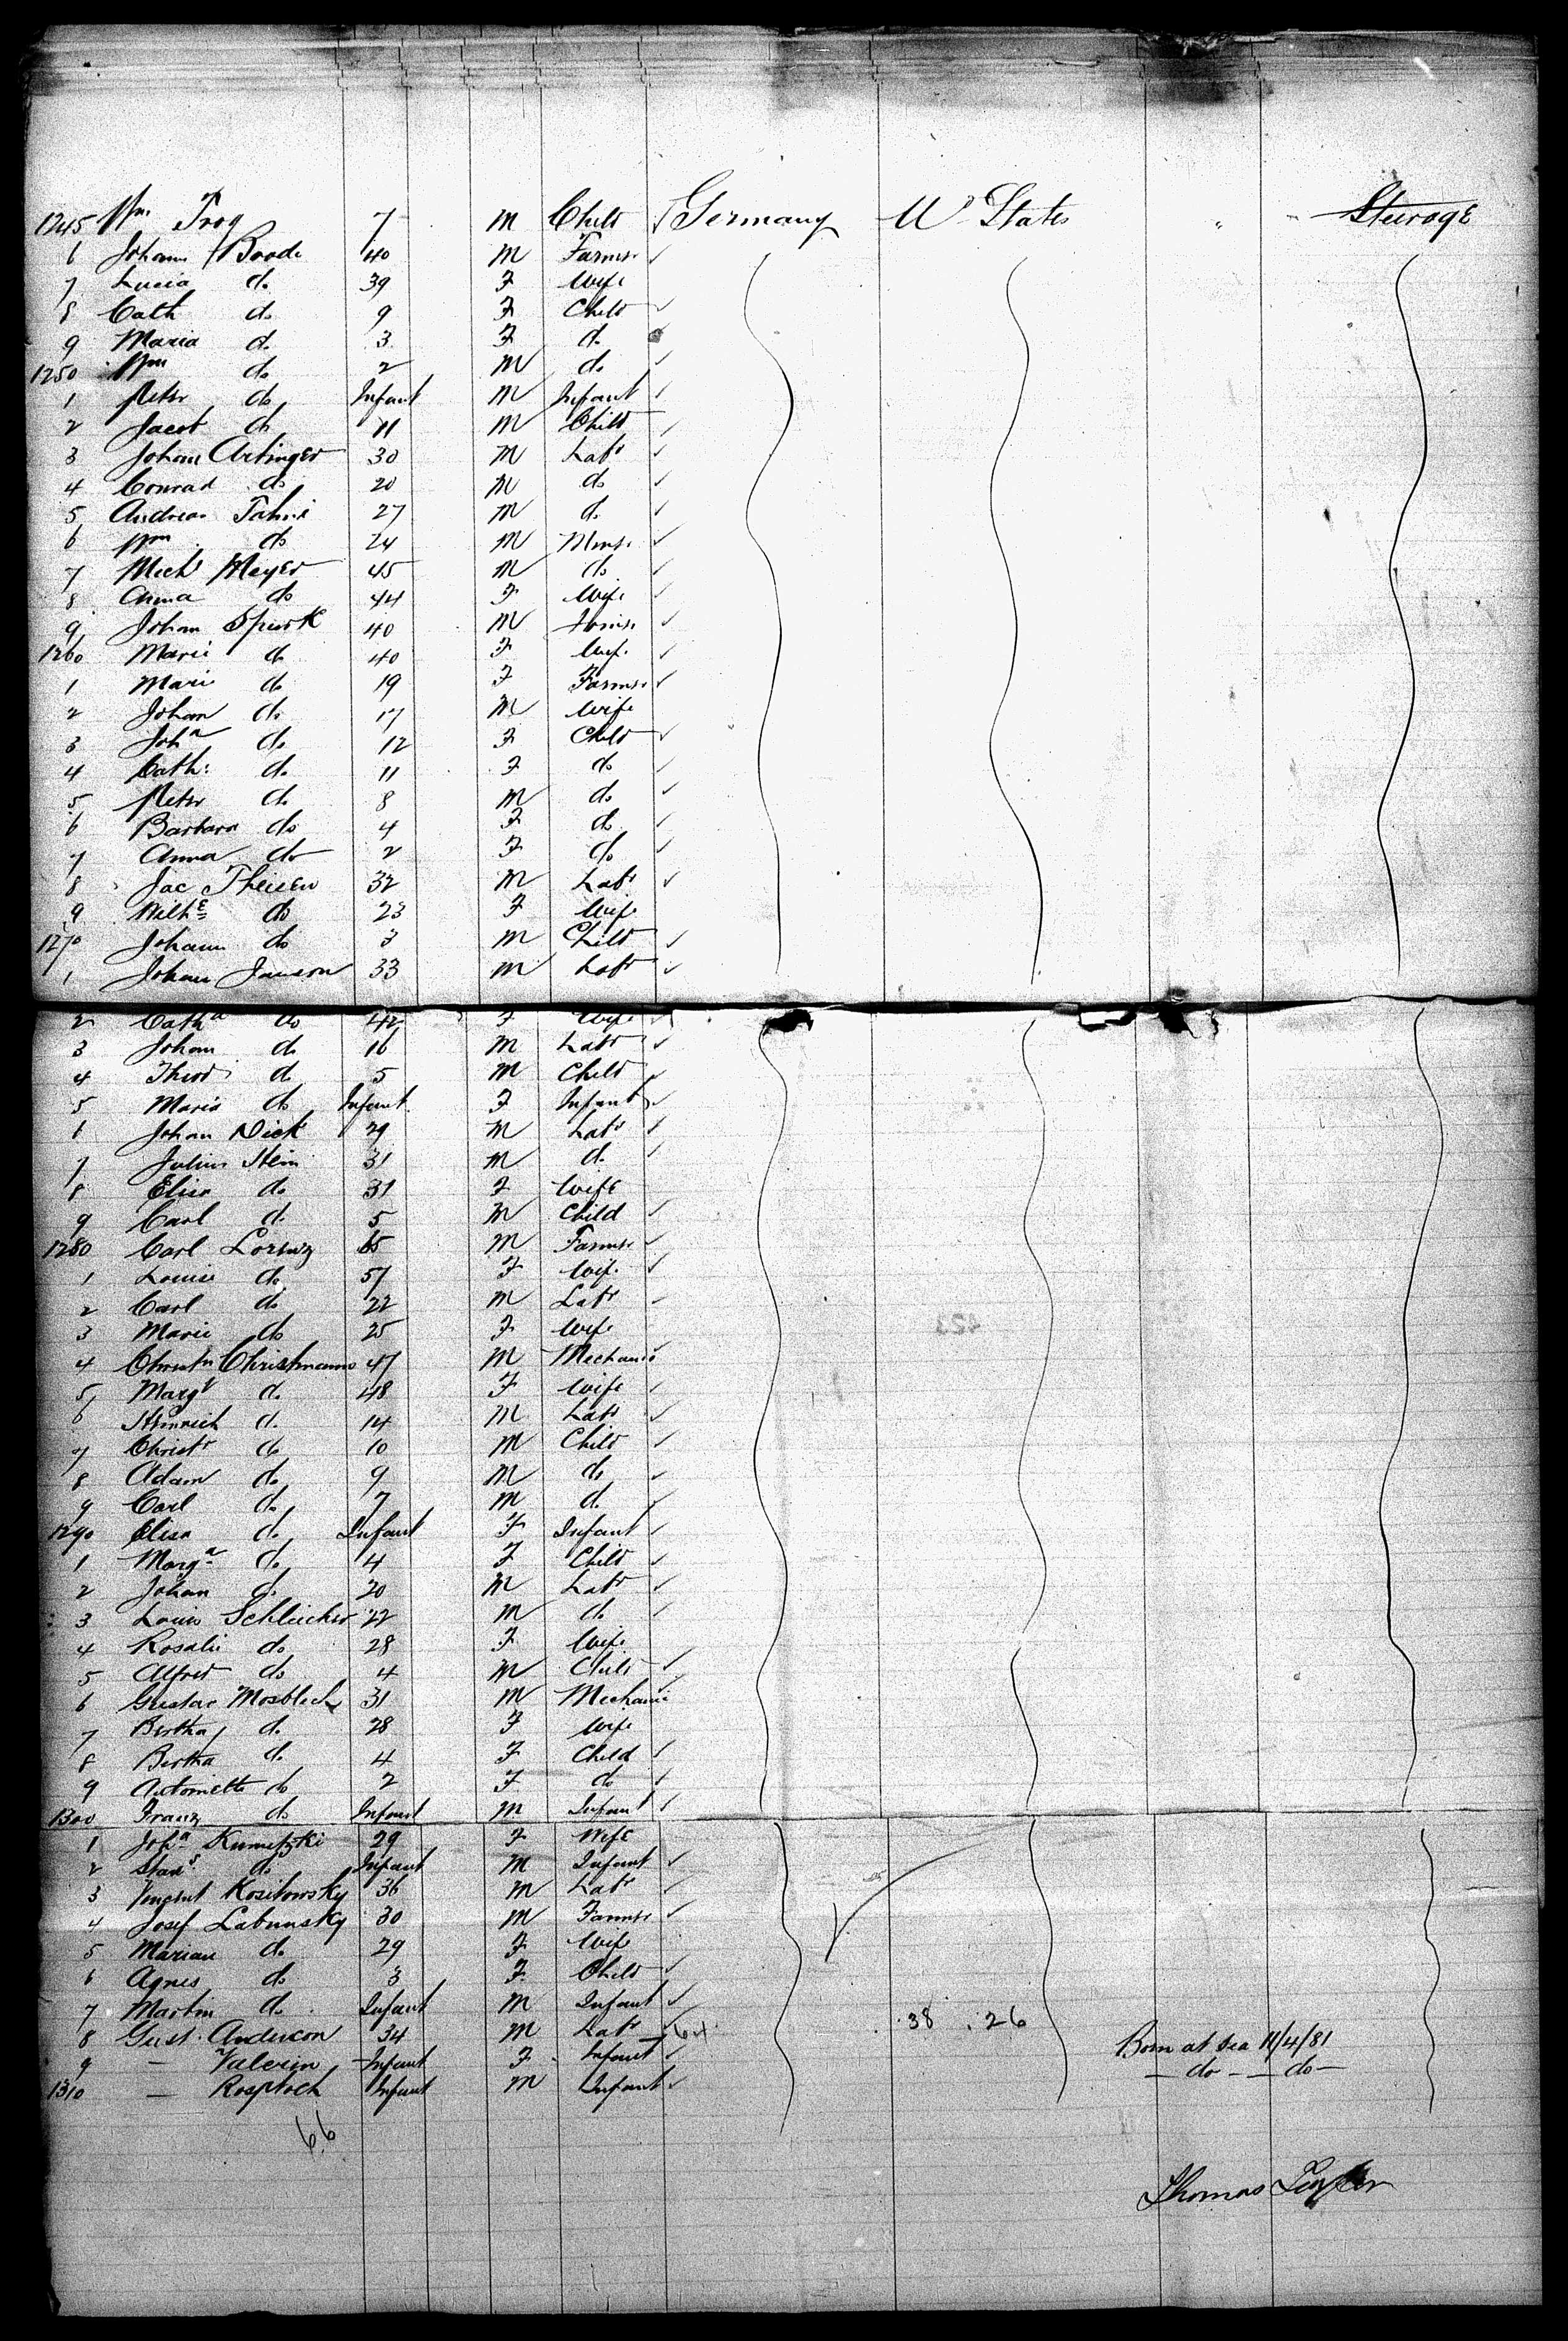 1245 Wm Trog 7 M Child Germany U States " Steerage
6 Johann Boode 40 M Farmr
7 Lucia do 39 F Wife
8 Cath do 9 F Child
9 Maria do 3 F do
1250 Wm do 2 M do
1 Peter do Infant M Infant
2 Jacob do 11 M Child
3 Johan Artinger 30 M Labr
4 Conrad do 20 M do
5 Andreas 27 M do
6 Wm do 24 M
7 Mich Meyer 45 M do
8 Anna do 44 F Wife
9 Johan Spurk 40 M
1260 Marie do 40 F Wife
1 Marie do 19 F Farmr
2 Johan do 17 M Wife
3 Joha do 12 F Child
4 Cath: do 11 F do
5 Peter do 8 M do
6 Barbara do 4 F do
7 Anna do 2 F do
8 Jac Theisen 32 M Labr
9 Wilhe do 23 F Wife
1270 Johann do 3 M Child
1 Johan Janson 33 M Labr
2 Catha do 42 F Wife
3 Johan do 16 M Labr
4 Theod do 5 M Child
5 Maria do Infant F Infant
6 Johan Dick 29 M Labr
7 Julius Stein 31 M do
8 Elisa do 31 F Wife
9 Carl do 5 M Child
1280 Carl Lorenz 65 M Farmr
1 Louise do 57 F Wife
2 Carl do 22 M Labr
3 Marie do 25 F Wife
4 Christn Christmann 47 M Mechanic
5 Margt do 48 F Wife
6 Heinrich do 14 M Labr
7 Christr do 10 M Child
8 Adam do 9 M do
9 Carl do 7 M do
1290 Elisa do Infant F Infant
1 Marga do 4 F Child
2 Johan do 20 M Labr
3 Louis Schleicher 22 M do
4 Rosalie do 28 F Wife
5 Alfred do 4 M Child
6 Gustav Mosblech 31 M Mechanic
7 Bertha do 28 F Wife
8 Bertha do 4 F Child
9 Antoinette do 2 F do
1300 Franz do Infant M Infant
1 Joha Kumetzki 29 F Wife
2 Stans do Infant M Infant
3 Vincent Kositowsky 36 M Labr
4 Josef Labunsky 30 M Farmr
5 Marian do 29 F Wife
6 Agnes do 3 F Child
7 Martin do Infant M Infant
8 Gust. Anderson 34 M Labr 64 38 . 26
9 — Valerin Infant F Infant Born at sea 11/4/81
1310 — Rosptoch Infant M Infant — do — — do —
66
Thomas